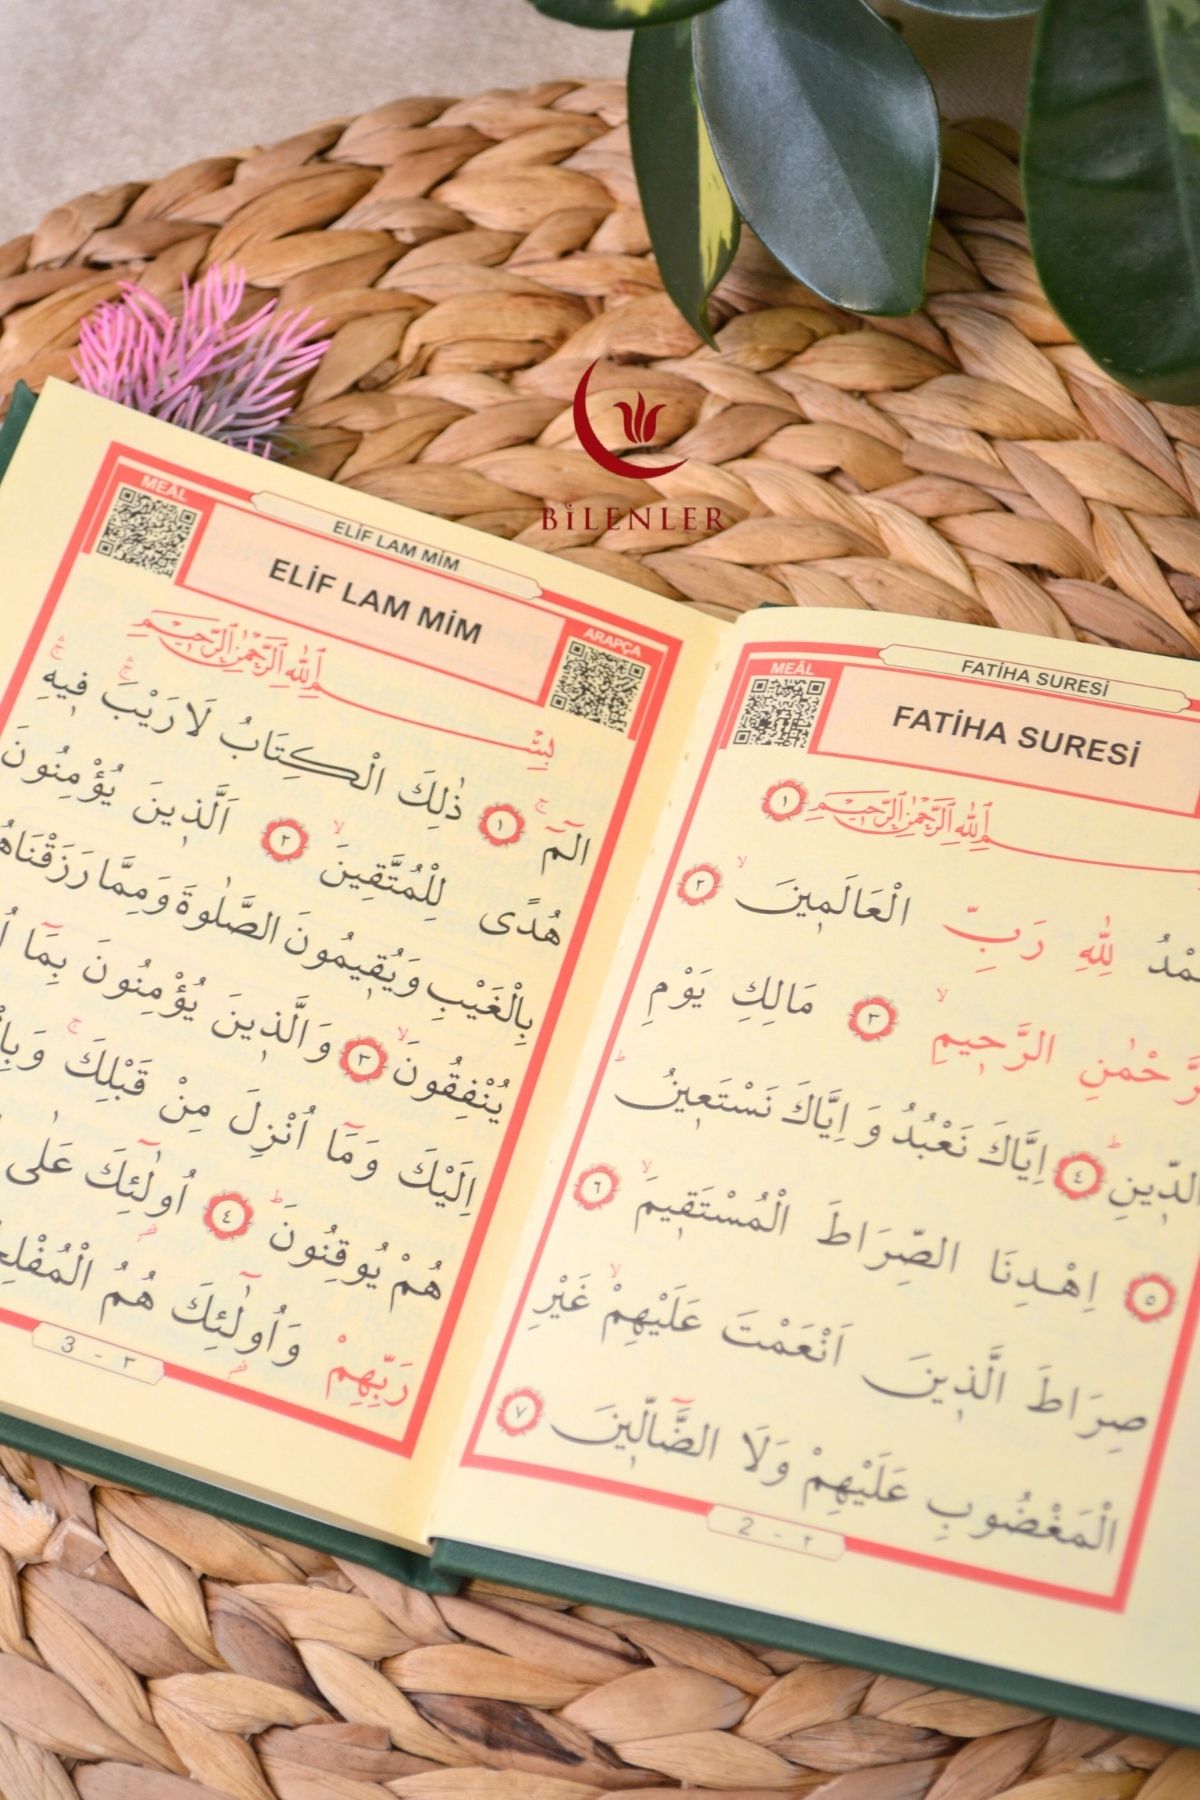 BİLENLER
FATİHA SURESİ
MEÂL
FATİHA SURESİ
اللّٰهِ الرَّحْمٰنِ الرَّحِيمِ ١
لِلّٰهِ رَبِّ الْعَالَمِينَ ٢
الرَّحِيمِ ٣ مَالِكِ يَوْمِ
الدِّينِ ٤ اِيَّاكَ نَعْبُدُ وَ اِيَّاكَ نَسْتَعِينُ
٥ اِهْدِنَا الصِّرَاطَ الْمُسْتَقِيمَ ٦
صِرَاطَ الَّذِينَ اَنْعَمْتَ عَلَيْهِمْ غَيْرِ
الْمَغْضُوبِ عَلَيْهِمْ وَلَا الضَّالِّينَ ٧
2 - ٢
ELİF LAM MİM
MEÂL
ELİF LAM MİM
ARAPÇA
بِسْمِ اللّٰهِ الرَّحْمٰنِ الرَّحِيمِ
الٓمٓ ١ ذٰلِكَ الْكِتَابُ لَا رَيْبَ فِيهِ
هُدًى لِلْمُتَّقِينَ ٢ اَلَّذِينَ يُؤْمِنُونَ
بِالْغَيْبِ وَيُقِيمُونَ الصَّلٰوةَ وَمِمَّا رَزَقْنَاهُمْ
يُنْفِقُونَ ٣ وَالَّذِينَ يُؤْمِنُونَ بِمَٓا
اِلَيْكَ وَمَٓا اُنْزِلَ مِنْ قَبْلِكَ
هُمْ يُوقِنُونَ ٤ اُولٰٓئِكَ عَلٰى
رَبِّهِمْ وَاُولٰٓئِكَ هُمُ
3 - ٣